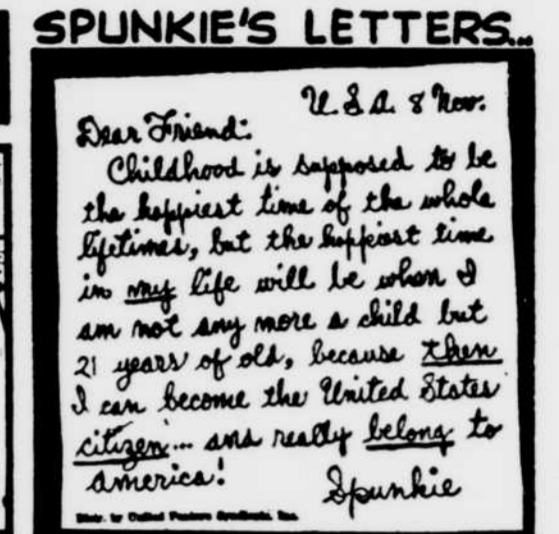 SPUNKIE'S LETTERS...
U.S.A. 8 Nov.
Dear Friend:
Childhood is supposed to be
the happiest time of the whole
lifetimes, but the happiest time
in my life will be when I
am not any more a child but
21 years of old, because then
I can become the United States
citizen... and really belong to
america!
Spunkie
Distr. by United Feature Syndicate, Inc.